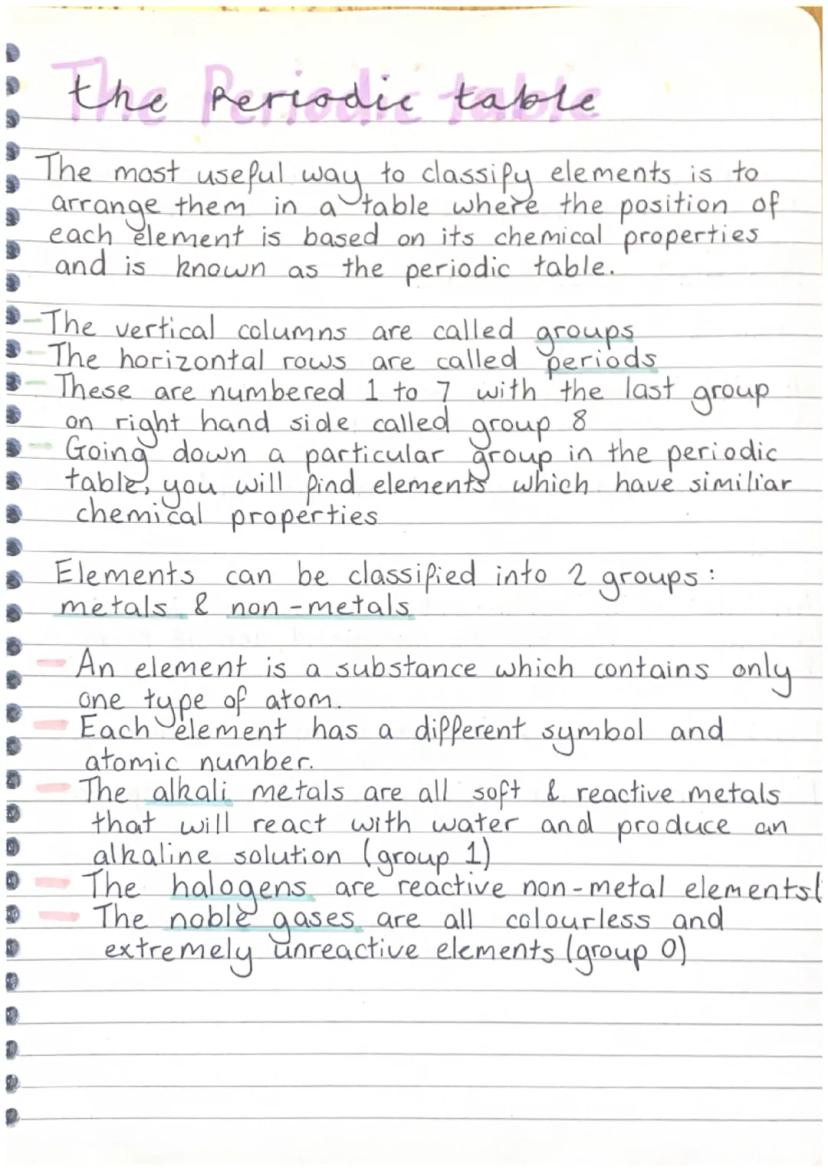 The Periodic table
The most useful way to classify elements is to
arrange them in a table where the position of
each element is based on its chemical properties
and is known as the periodic table.
- The vertical columns are called groups
- The horizontal rows are called periods
- These are numbered 1 to 7 with the last group
on right hand side called group 8
- Going down a particular group in the periodic
table, you will find elements which have similiar
chemical properties
Elements can be classified into 2 groups:
metals & non-metals
- An element is a substance which contains only
one type of atom.
- Each element has a different symbol and
atomic number.
- The alkali metals are all soft & reactive metals
that will react with water and produce an
alkaline solution (group 1)
- The halogens are reactive non-metal elements(
- The noble gases are all colourless and
extremely unreactive elements (group 0)